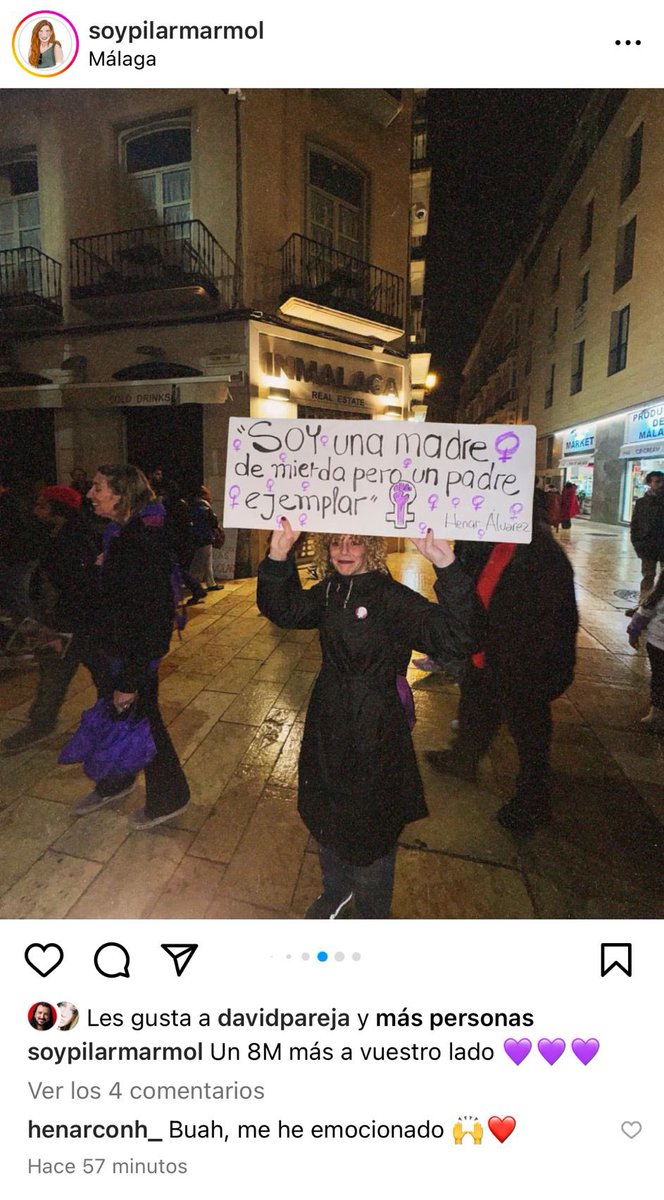 soypilarmarmol
Málaga
INMALAGA
REAL ESTATE
COLD DRINKS
MARKET
"SOY una madre
de mierda pero un padre
ejemplar"
Henar Álvarez
Les gusta a davidpareja y más personas
soypilarmarmol Un 8M más a vuestro lado 💜💜💜
Ver los 4 comentarios
henarconh_ Buah, me he emocionado 🙌❤️
Hace 57 minutos